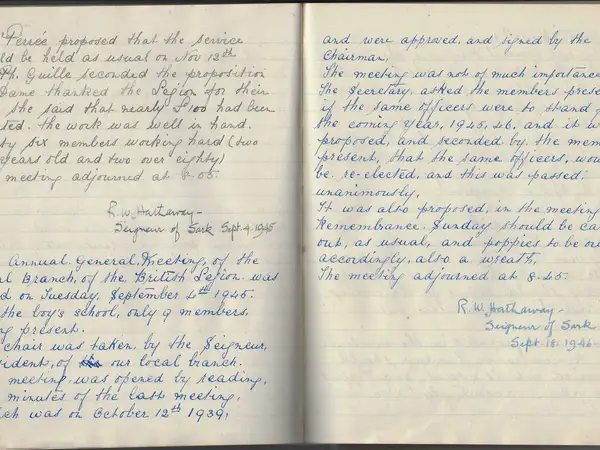 Perrée proposed that the service
ld be held as usual on Nov 12th
Ph. Guille seconded the proposition
Dame thanked the Legion for their
she said that nearly £100 had been
ted. the work was well in hand.
by six members working hard (two
years old and two over eighty)
meeting adjourned at 8.05.
R.W. Hathaway-
Seigneur of Sark Sept. 4. 1945
Annual General Meeting, of the
al Branch, of the British Legion was
d on Tuesday, September 4th 1945.
the boy's school, only 9 members,
g present.
chair was taken, by the Seigneur,
sident, of our local branch.
meeting was opened by reading,
minutes of the last meeting,
ich was on October 12th 1939,
and were approved, and signed by the
Chairman,
The meeting was not of much importance
The Secretary, asked the members prese
if the same officers were to stand f
the coming year, 1945, 46, and it w
proposed, and seconded by the mem
present, that the same officers, wou
be re-elected, and this was passed.
unanimously,
It was also proposed, in the meeting
Remembrance Sunday should be ca
out, as usual, and poppies to be or
accordingly, also a wreath,
The meeting adjourned at 8.45.
R.W. Hathaway-
Seigneur of Sark
Sept 18. 1946